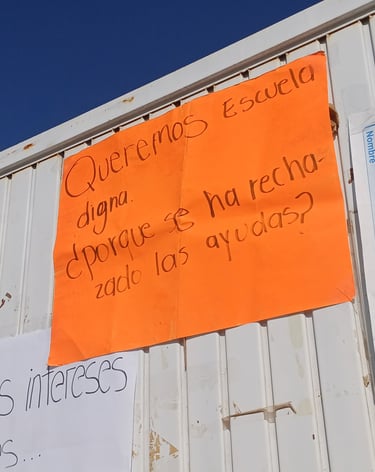 Queremos Escuela
digna.
¿porque se ha recha-
zado las ayudas?
s intereses
s...
Nombre